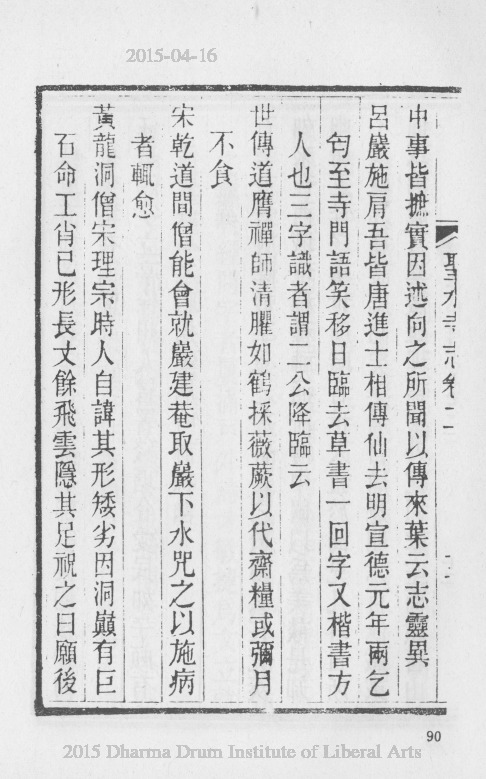 2015-04-16
聖水寺志卷二
中事皆摭實因述向之所聞以傳來葉云志靈異
呂巖施肩吾皆唐進士相傳仙去明宣德元年兩乞
匄至寺門語笑移日臨去草書一回字又楷書方
人也三字識者謂二公降臨云
世傳道膺禪師清臞如鶴採薇蕨以代齋糧或彌月
不食
宋乾道間僧能會就巖建菴取巖下水咒之以施病
者輒愈
黃龍洞僧宋理宗時人自諱其形矮劣因洞巔有巨
石命工肖已形長丈餘飛雲隱其足祝之曰願後
90
2015 Dharma Drum Institute of Liberal Arts